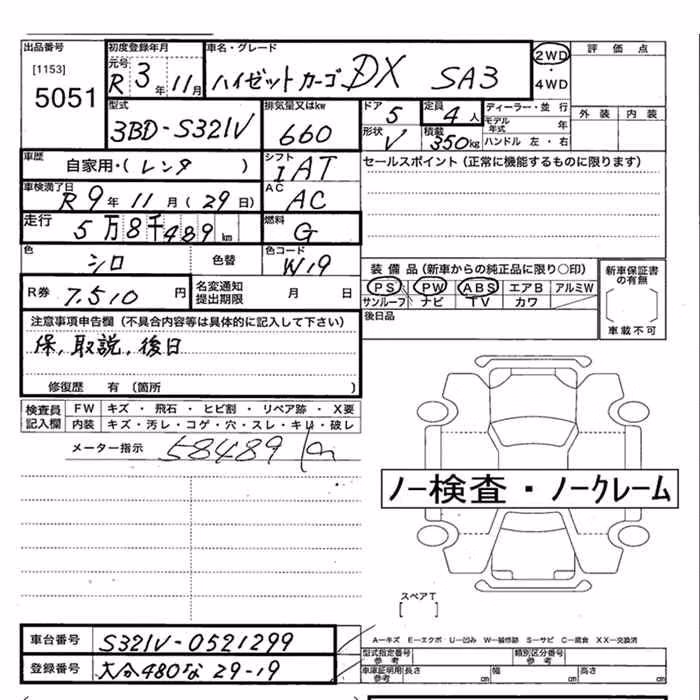 出品番号
[1153]
5051
初度登録年月
元号
R 3年 11月
車名・グレード
ハイゼットカーゴ DX SA3
2WD
・
4WD
評価点
外装 内装
型式
3BD-S321V
排気量又はkw
660
ドア
5
定員
4人
形状
V
積載
350kg
ディーラー・並行
モデル年式 年
ハンドル 左・右
車歴
自家用・(レンタ )
シフト
IAT
セールスポイント (正常に機能するものに限ります)
車検満了日
R9年 11月 (29日)
AC
AC
走行
5万8千489km
燃料
G
色
シロ
色替
色コード
W19
R券 7.510円
名変通知
提出期限 月 日
装備品 (新車からの純正品に限り〇印)
PS PW ABS エアB アルミW
サンルーフ ナビ TV カワ
新車保証書
の有無
車載不可
後日品
注意事項申告欄 (不具合内容等は具体的に記入して下さい)
保,取説,後日
修復歴 有 (箇所 )
検査員
記入欄
FW キズ ・ 飛石 ・ ヒビ割 ・ リペア跡 ・ X要
内装 キズ・汚レ・コゲ・穴・スレ・キレ・破レ
メーター指示 58489 km
ノー検査・ノークレーム
スペアT
[ ]
車台番号 S321V-0521299
登録番号 大分480な 29-19
A−キズ E−エクボ U−凹み W−補修跡 S−サビ C−腐食 XX−交換済
型式指定番号
参考
類別区分番号
参考
車庫証明用
参考
長さ cm 幅 cm 高さ cm